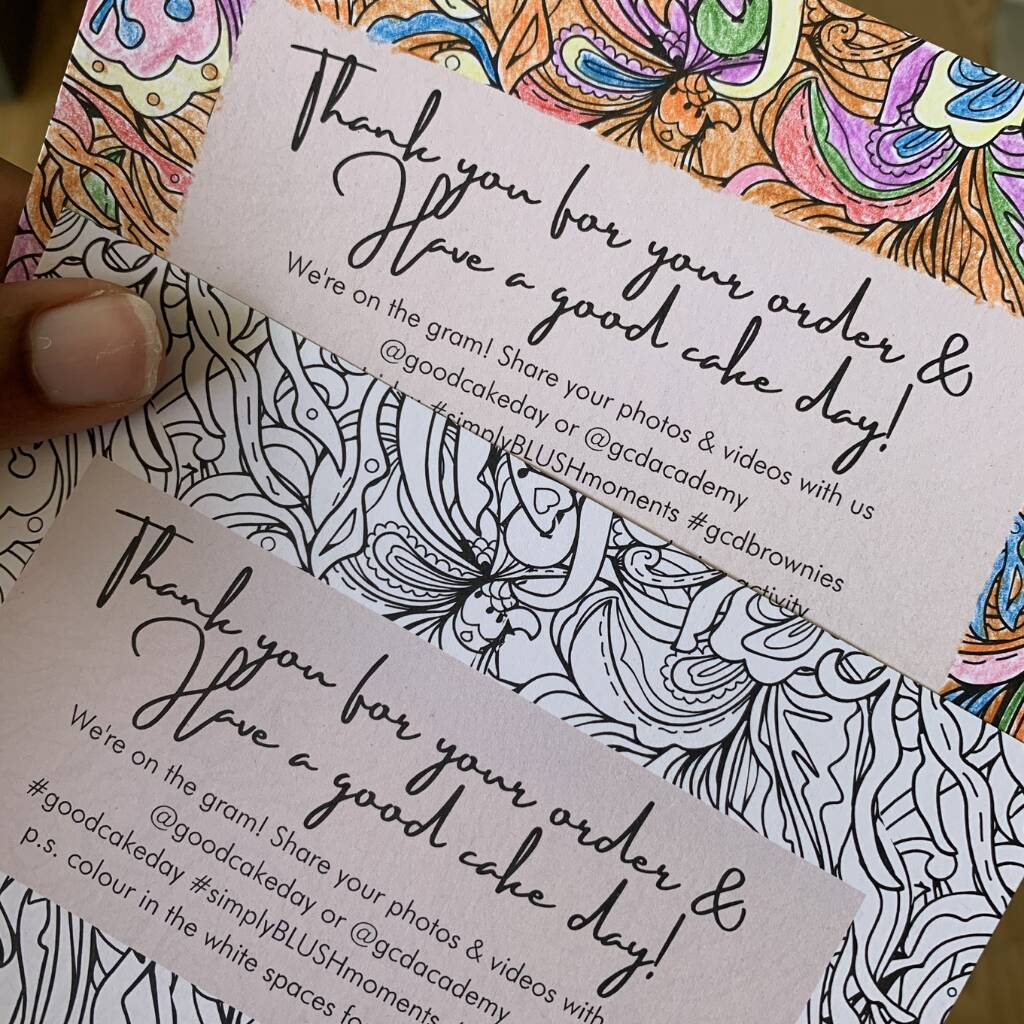 Thank you for your order &
Have a good cake day!
We're on the gram! Share your photos & videos with us
@goodcakeday or @gcdacademy
#simplyBLUSHmoments #gcdbrownies
Thank you for your order &
Have a good cake day!
We're on the gram! Share your photos & videos with
@goodcakeday or @gcdacademy
#goodcakeday #simplyBLUSHmoments
p.s. colour in the white spaces